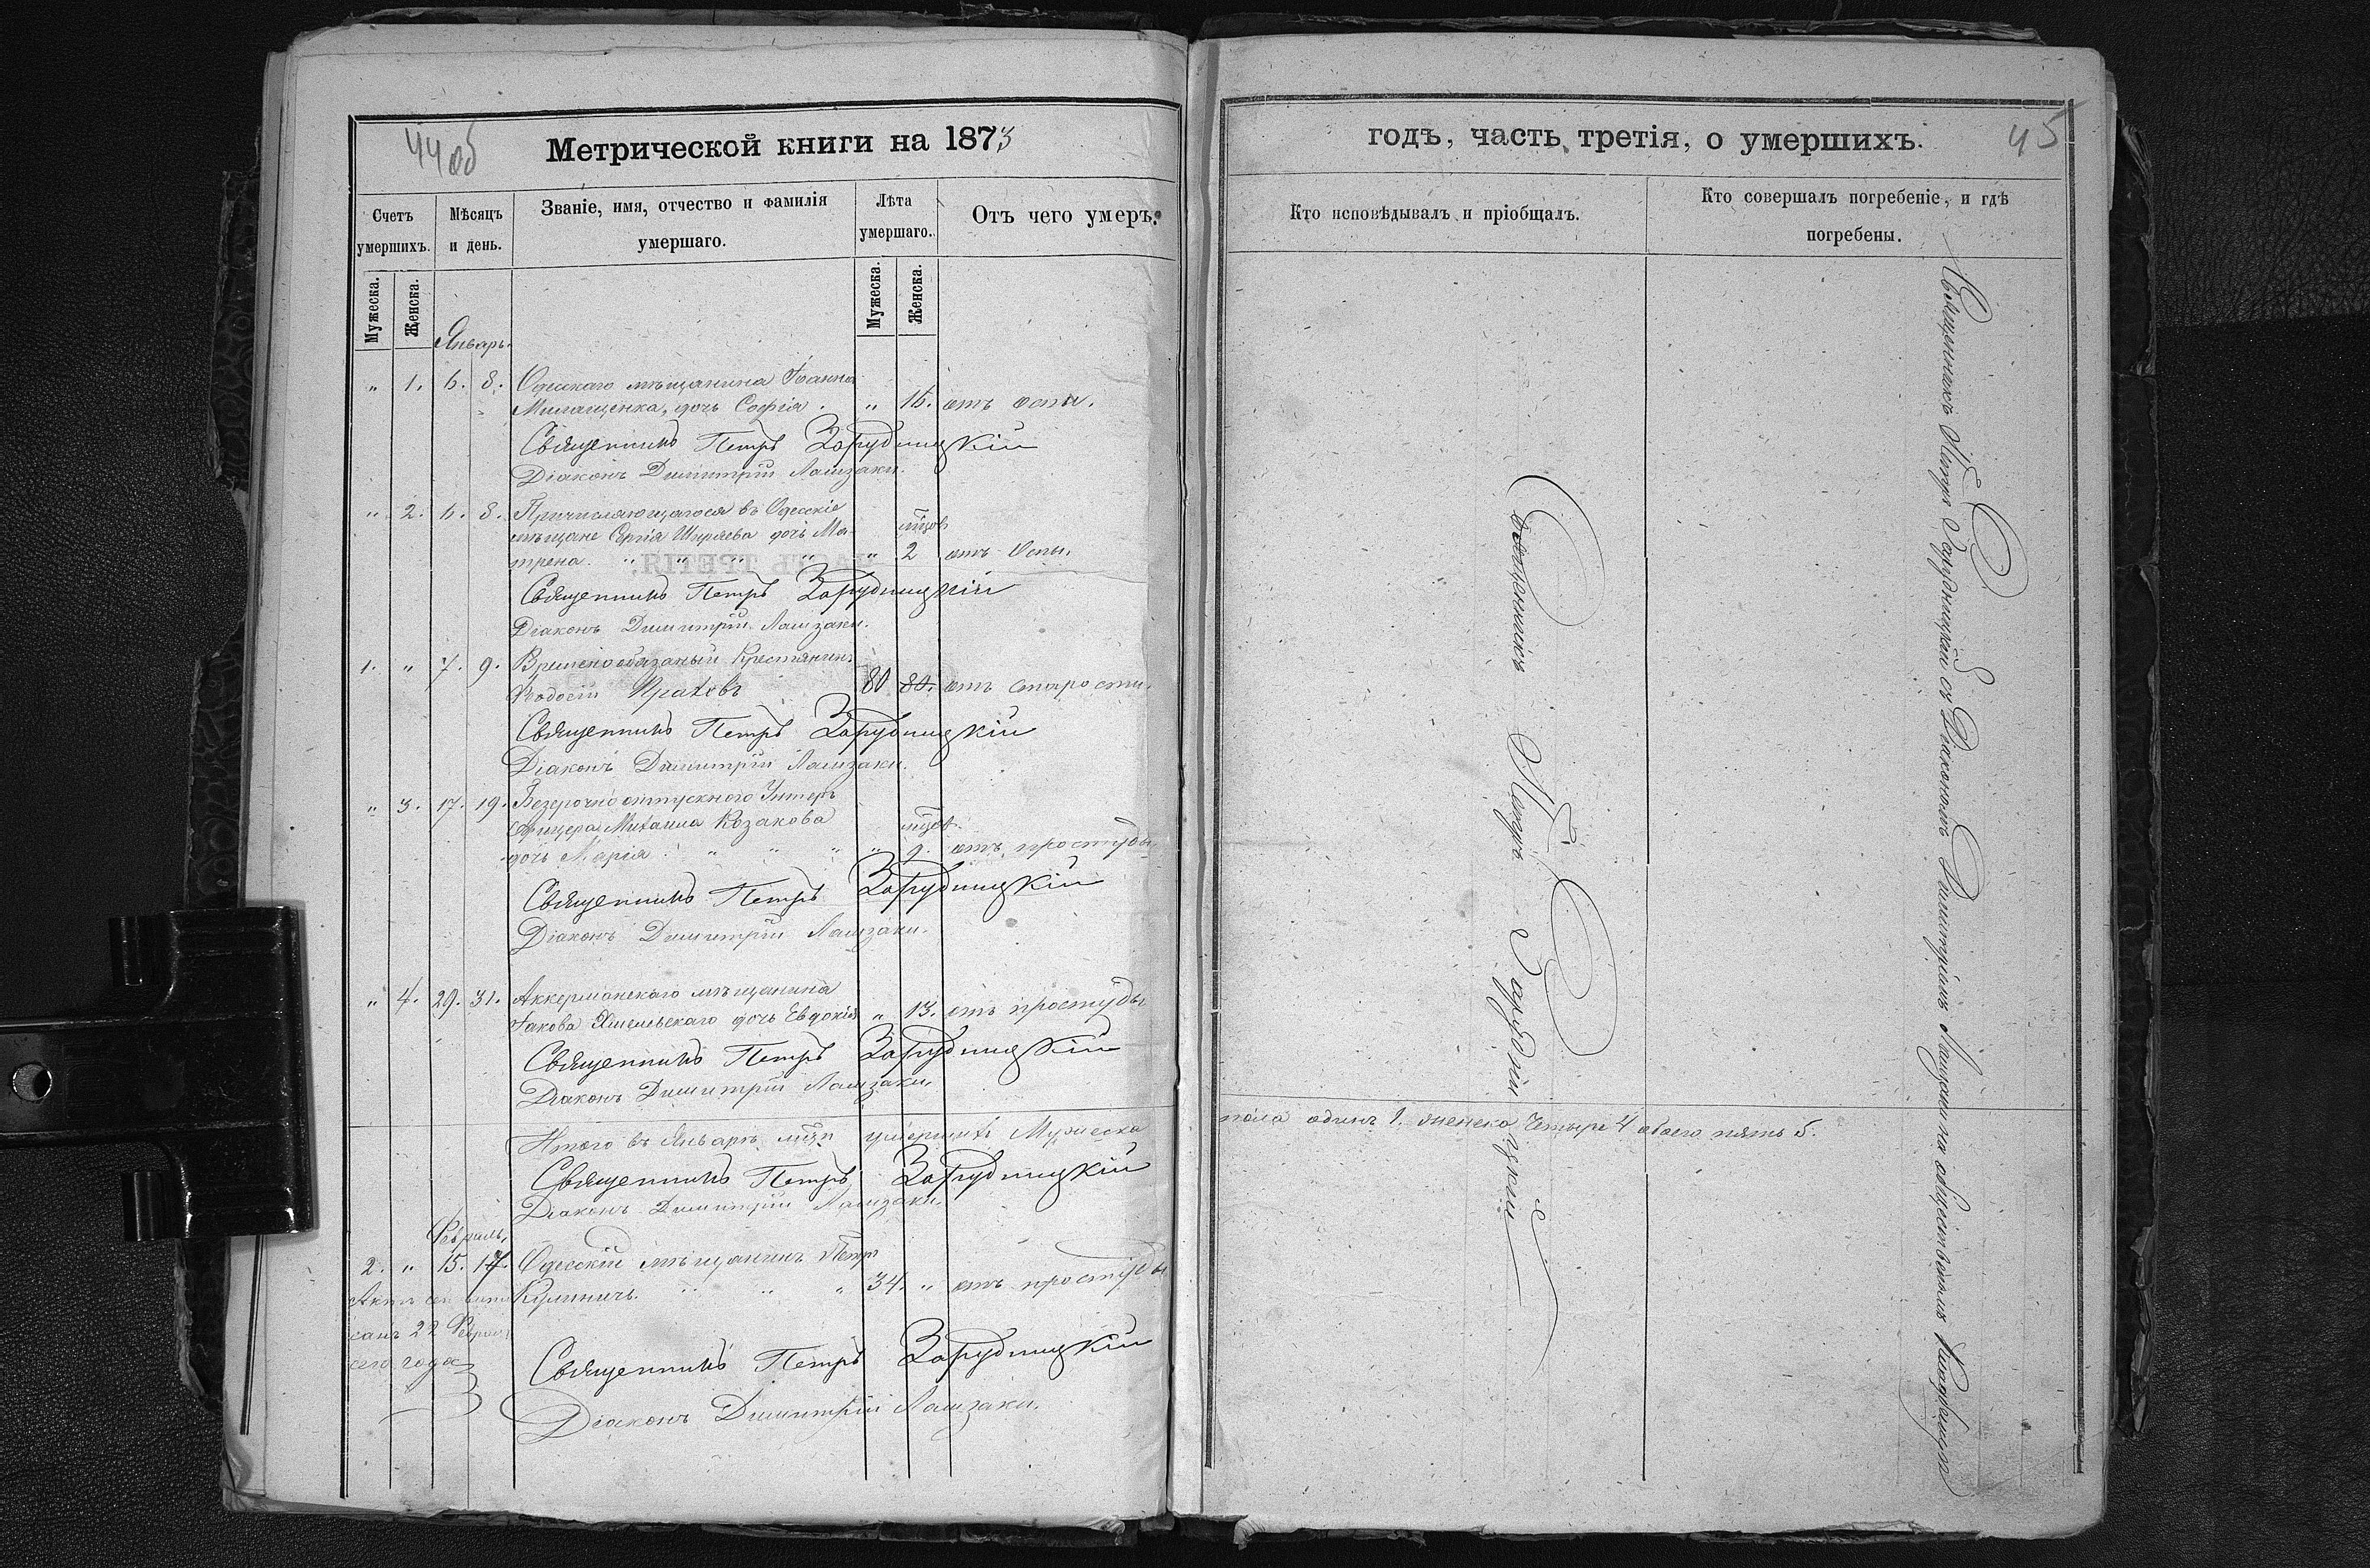 44 об
Метрической книги на 1873
Счетъ умершихъ.
Мѣсяцъ и день.
Званіе, имя, отчество и фамилія умершаго.
Лѣта умершаго.
Отъ чего умеръ.
Мужеска.
Женска.
Мужеска.
Женска.
Январь.
" 1. 6. 8. Одесскаго мѣщанина Іоанна
Милащенка, дочь Софія. " 16. отъ оспы.
Священникъ Петръ Зарудницкій
Діаконъ Димитрій Лашзаки.
" 2. 6. 8. Причисляющагося въ Одесскіе
мѣщане Сергія Ширяева дочь Ма-
трена. " " " " " 2 отъ Оспы.
Священникъ Петръ Зарудницкій
Діаконъ Димитрій Лашзаки.
1. " 7. 9. Временнообязаный Крестянинъ
Ѳодосій 80 80. отъ старости.
Священникъ Петръ Зарудницкій
Діаконъ Димитрій Лашзаки.
" 3. 17. 19. Безсрочно отпускного Унтеръ
Офицера Михаила Козакова
дочь Марія. " " " " 9. отъ простуды
Священникъ Петръ Зарудницкій
Діаконъ Димитрій Лашзаки.
" 4. 29. 31. Аккерманскаго мѣщанина
Іакова Хмельскаго дочь Евдокія " 13. отъ простуды
Священникъ Петръ Зарудницкій
Діаконъ Димитрій Лашзаки.
Итого въ Январѣ умершихъ Мужеска
Священникъ Петръ Зарудницкій
Діаконъ Димитрій Лашзаки.
Февраль.
2. " 15. 17. Одесскій мѣщанинъ Петр
Кулиничъ. " " " 34. " отъ простуды
Актъ сей
санъ 22 Февраля
сего года
Священникъ Петръ Зарудницкій
Діаконъ Димитрій Лашзаки.
годъ, часть третія, о умершихъ.
45
Кто исповѣдывалъ и пріобщалъ.
Кто совершалъ погребеніе, и гдѣ погребены.
Священникъ Петръ Зарудницкій
Священникъ Петръ Зарудницкій съ Діакономъ Димитріемъ Лашзаки на общественномъ Кладбищѣ
пола одинъ 1. женска Четыре 4 обоего пять 5.